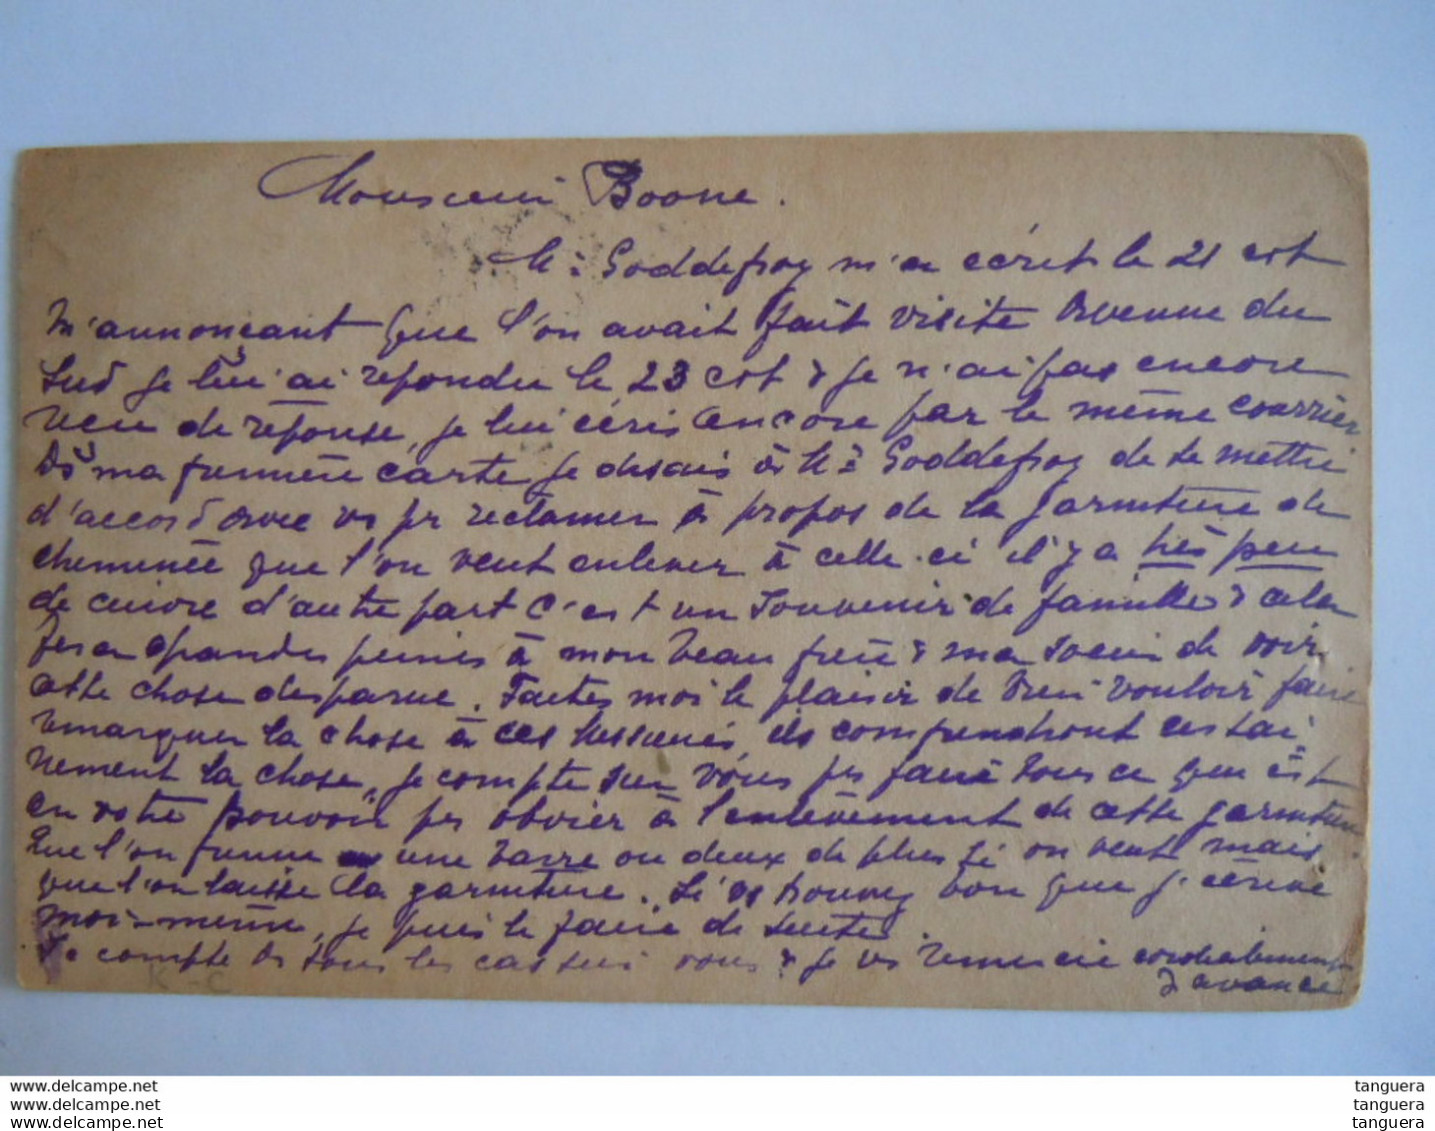 Monsieur Boone.
Mr Goddefroy m'a écrit le 21 cst
m'annonçant que l'on avait fait visite Avenue du
Sud je lui ai répondu le 23 cst & je n'ai pas encore
reçu de réponse, je lui écris encore par le même courrier
Ds ma première carte je disais à Mr Goddefroy de se mettre
d'accord avec vs pr réclamer à propos de la garniture de
cheminée que l'on veut enlever à celle-ci il y a très peu
de cuivre d'autre part c'est un souvenir de famille & cela
fera grandes peines à mon beau frère & ma soeur de voir
cette chose disparue. Faites moi le plaisir de bien vouloir faire
remarquer la chose à ces Messieurs, ils comprendront certai
nement la chose, je compte sur vous pr faire tous ce que est
en votre pouvoir pr obvier à l'enlèvement de cette garniture
Que l'on prenne une barre ou deux de plus si on veut mais
que l'on laisse la garniture. Si vs trouvez bon que j'écrive
moi-même, je puis le faire de suite.
Je compte ds tous les cas sur vous & je vs remercie cordialement
d'avance
K-C
www.delcampe.net
www.delcampe.net
www.delcampe.net
tanguera
tanguera
tanguera